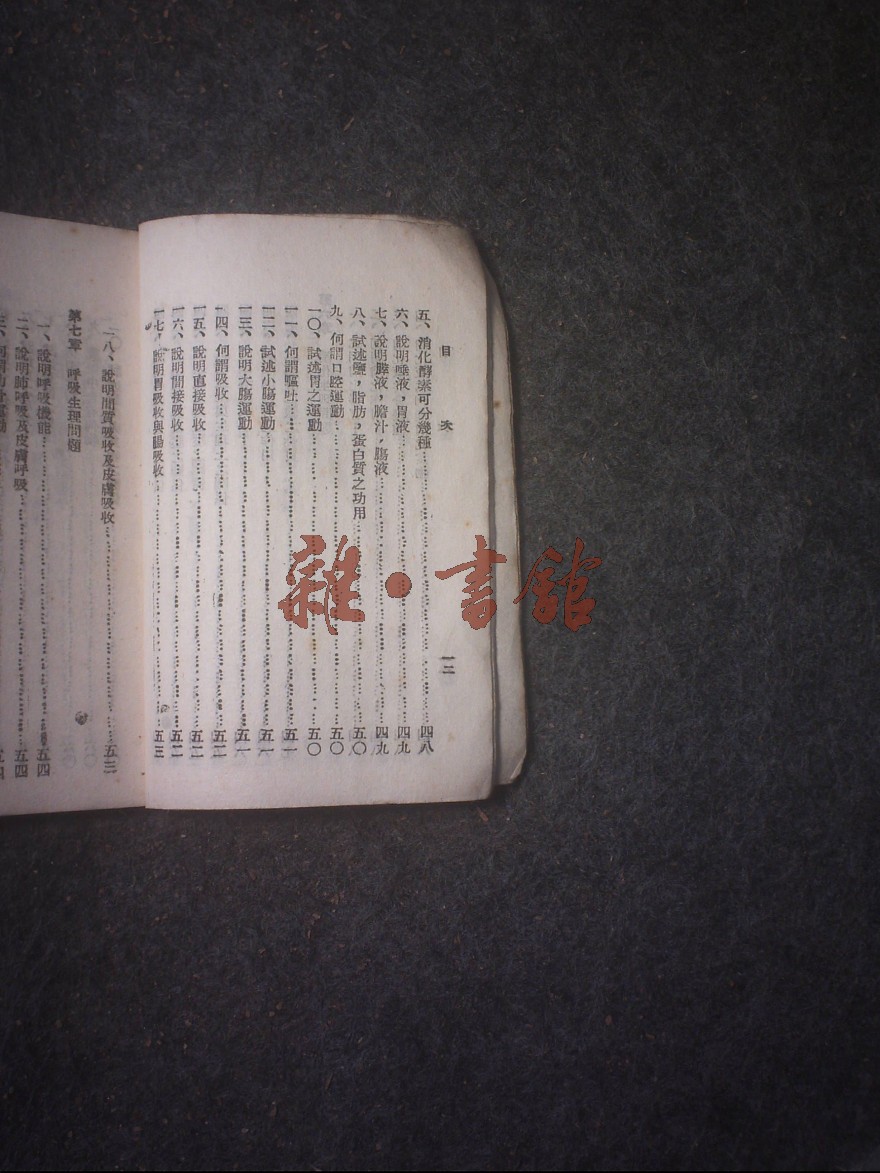 目次
一二
五、消化酵素可分幾種……四八
六、說明唾液，胃液……四九
七、說明膵液，膽汁，腸液……四九
八、試述鹽，脂肪，蛋白質之功用……五〇
九、何謂口腔運動……五〇
一〇、試述胃之運動……五〇
一一、何謂嘔吐……五一
一二、試述小腸運動……五一
一三、說明大腸運動……五一
一四、何謂吸收……五二
一五、說明直接吸收……五二
一六、說明間接吸收……五二
一七、說明胃吸收與腸吸收……五三
一八、說明間質吸收及皮膚吸收……五三
第七章　呼吸生理問題
一、說明呼吸機能……五四
二、說明肺呼吸及皮膚呼吸……五四
雜·書館